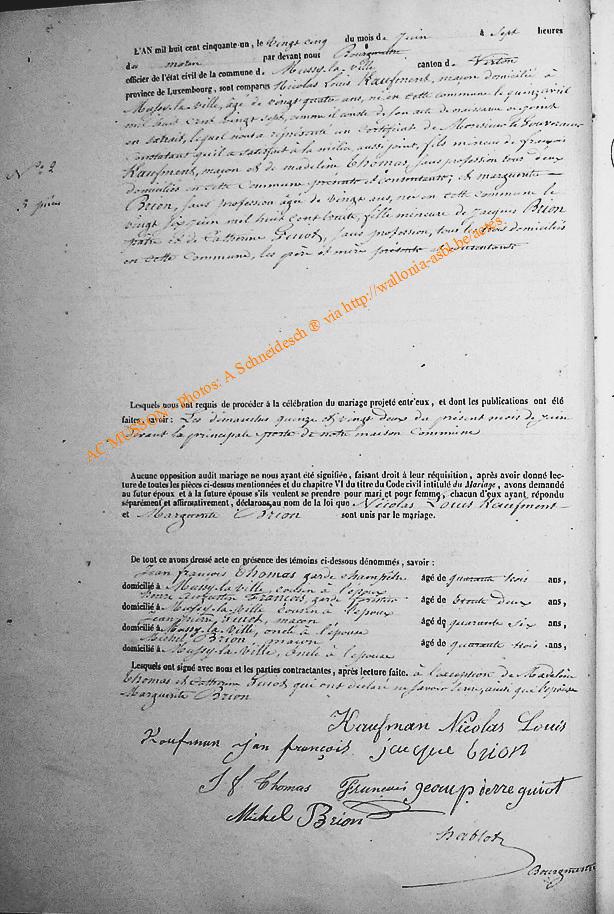 L'AN mil huit cent cinquante-un, le vingt cinq du mois de Juin à Sept heures
du matin par devant nous Bourgmestre
officier de l'état civil de la commune d. Mussy-la-ville canton d. Virton
province de Luxembourg, sont comparus Nicolas Louis Kaufment, maçon domicilié à
Mussy-la-ville, âgé de vingt quatre ans, né en cette commune le quinze avril
mil huit cent vingt sept, comme il conste de son acte de naissance ci joint
en extrait, lequel nous a représenté un certificat de Monsieur le Gouverneur
constatant qu'il a satisfait à la milice, aussi joint, fils mineur de françois
Kaufment, maçon et de madeleine Thomas, sans profession tous deux
domiciliés en cette Commune présents et consentants; et marguerite
Brion, sans profession âgée de vingt ans, née en cette commune le
vingt six juin mil huit cent trente, fille mineure de Jacques Brion
et de Catherine Guiot, sans profession, tous les trois domiciliés
en cette Commune, les père et mère présents et consentants
N° 2
3 pièces
AC MUSSON - Photos: A Schneidesch ® via http://wallonia-asbl.be/actes
Lesquels nous ont requis de procéder à la célébration du mariage projeté entr'eux, et dont les publications ont été
faites, savoir: Les dimanches quinze et vingt deux du présent mois de juin
devant la principale porte de notre maison Commune
Aucune opposition audit mariage ne nous ayant été signifiée, faisant droit à leur réquisition, après avoir donné lec-
ture de toutes les pièces ci-dessus mentionnées et du chapitre VI du titre du Code civil intitulé du Mariage, avons demandé
au futur époux et à la future épouse s'ils veulent se prendre pour mari et pour femme, chacun d'eux ayant répondu
séparément et affirmativement, déclarons au nom de la loi que Nicolas Louis Kaufment
et Marguerite Brion sont unis par le mariage.
De tout ce avons dressé acte en présence des témoins ci-dessous dénommés, savoir :
Jean françois Thomas garde champêtre âgé de quarante trois ans,
domicilié à Mussy-la-ville, cousin à l'époux
François garde forestier âgé de trente deux ans,
domicilié à Mussy-la-Ville cousin à l'époux
Jean pierre Guiot, maçon âgé de quarante six ans,
domicilié à Mussy-la-Ville, oncle à l'épouse
Michel Brion maçon âgé de quarante trois ans,
domicilié à Mussy-la-Ville, oncle à l'épouse
Lesquels ont signé avec nous et les parties contractantes, après lecture faite. à l'exception de Madeleine
Thomas et Catherine Guiot, qui ont déclaré ne savoir écrire, ainsi que l'épouse
Marguerite Brion
Kaufman Nicolas Louis
Koufman jan françois jacque brion
J f Thomas François jean pierre guiot
Michel Brion
hablot
Bourgmestre